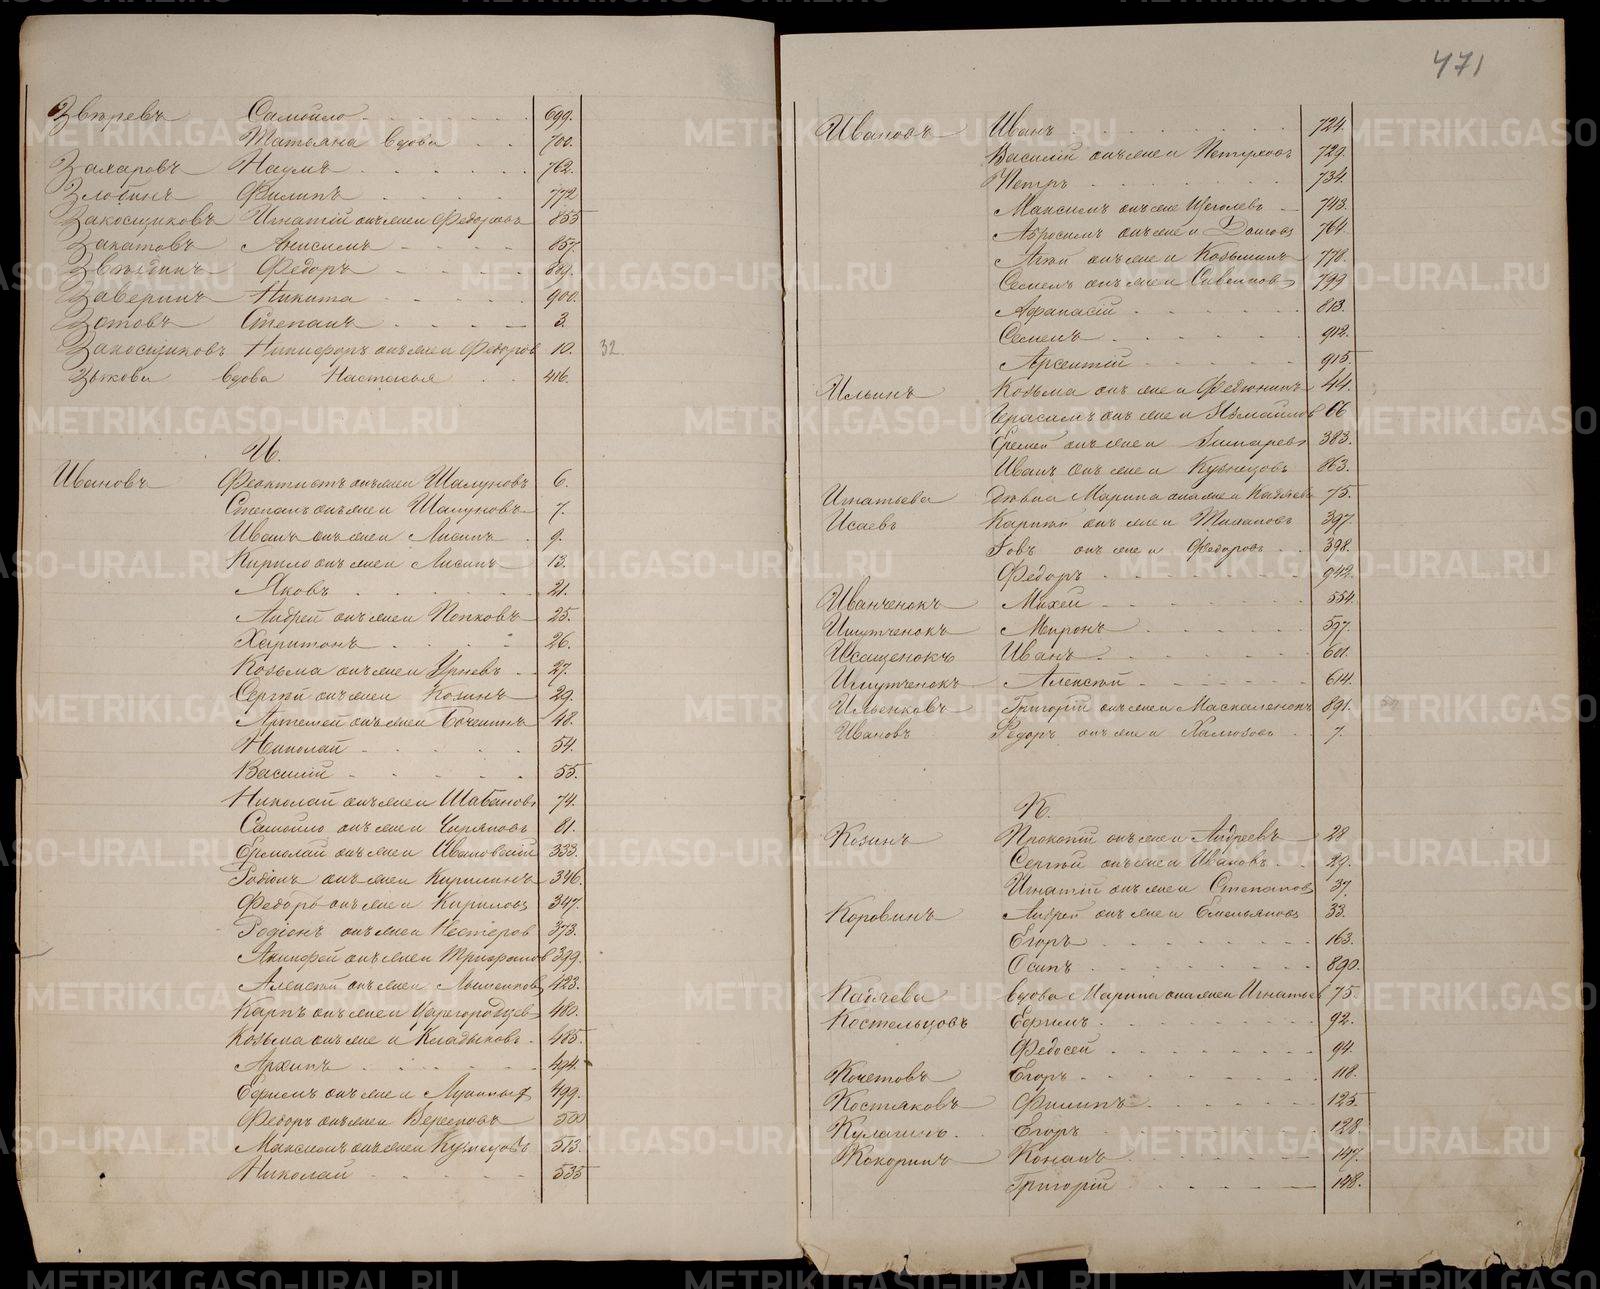 Звѣревъ Самойло 699.
Татьяна вдова 700.
Захаровъ Наумъ 762.
Злобинъ Филипъ 772
Закосщиковъ Игнатій онъ же и Федоровъ 855
Закатовъ Анисимъ 857.
Звѣздинъ Федоръ 889.
Заверинъ Никита 900.
Зотовъ Степанъ 3.
Закосщиковъ Никифоръ онъ же и Федоров 10. 32.
Зыкова вдова Настасья 416.
И.
Ивановъ Феоктистъ онъ же и Шалуновъ 6.
Степанъ онъ же и Шалуновъ 7.
Иванъ онъ же и Лисинъ 9.
Кирило онъ же и Лисинъ 13.
Яковъ 21.
Андрей онъ же и Попковъ 25.
Харитонъ 26.
Козьма онъ же и 27.
Сергѣй онъ же и Козинъ 29.
Артемей онъ же и Боченинъ 48.
Николай 54.
Василій 55.
Николай онъ же и Шабановъ 74.
Самойло онъ же и Чирковъ 81.
Ермолай онъ же и Ивановскій 333.
Родіонъ онъ же и Кирилинъ 346.
Федоръ онъ же и Кириловъ 347.
Родіонъ онъ же и Нестеров 373.
Акинфей онъ же и Трифонов 399.
Алексѣй онъ же и 423.
Карпъ онъ же и Царегородцев 480.
Козьма онъ же и Кладыковъ 485.
Архипъ 494.
Ефимъ онъ же и 499.
Федоръ онъ же и Веретновъ 500
Максимъ онъ же и Кузнецовъ 513.
Николай 535
471
Ивановъ Иванъ 724.
Василій онъ же и Петуховъ 729.
Петръ 734.
Максимъ онъ же Щеголевъ 743.
Абросимъ онъ же и Долговъ 764.
Агѣй онъ же и Козьминъ 778.
Семенъ онъ же и 799
Афанасій 813.
Семенъ 912.
Арсентій 915
Ильинъ Козьма онъ же и Федюнинъ 44.
Герасимъ онъ же и Измайлов 66
Еремей онъ же и 383.
Иванъ онъ же и Кузнецовъ 863.
Игнатьева Дѣвка Марина она же и Кадяева 75.
Исаевъ Карпъ онъ же и 397.
Іовъ онъ же и Федоровъ 398.
Федоръ 942.
Иванченокъ Михей 554.
Ишутченокъ Миронъ 597.
Исащенокъ Иванъ 601.
Ишутченокъ Алексѣй 614.
Ильенковъ Григорій онъ же и Маскаленокъ 891.
Ивановъ Федоръ онъ же и Халюзовъ 7.
К.
Козинъ Прокопій онъ же и Андреевъ 28
Сергѣй онъ же и Ивановъ 29.
Игнатій онъ же и Степанов 37.
Коровинъ Андрей онъ же и Емельяновъ 33.
Егоръ 163.
Осипъ 890.
Кадяева вдова Марина она же и Игнатьев 75.
Костельцовъ Ефимъ 92.
Федосей 94.
Кочетовъ Егоръ 118.
Костяковъ Филипъ 125.
Кулагинъ Егоръ 128.
Кокоринъ Кононъ 147.
Григорій 148.